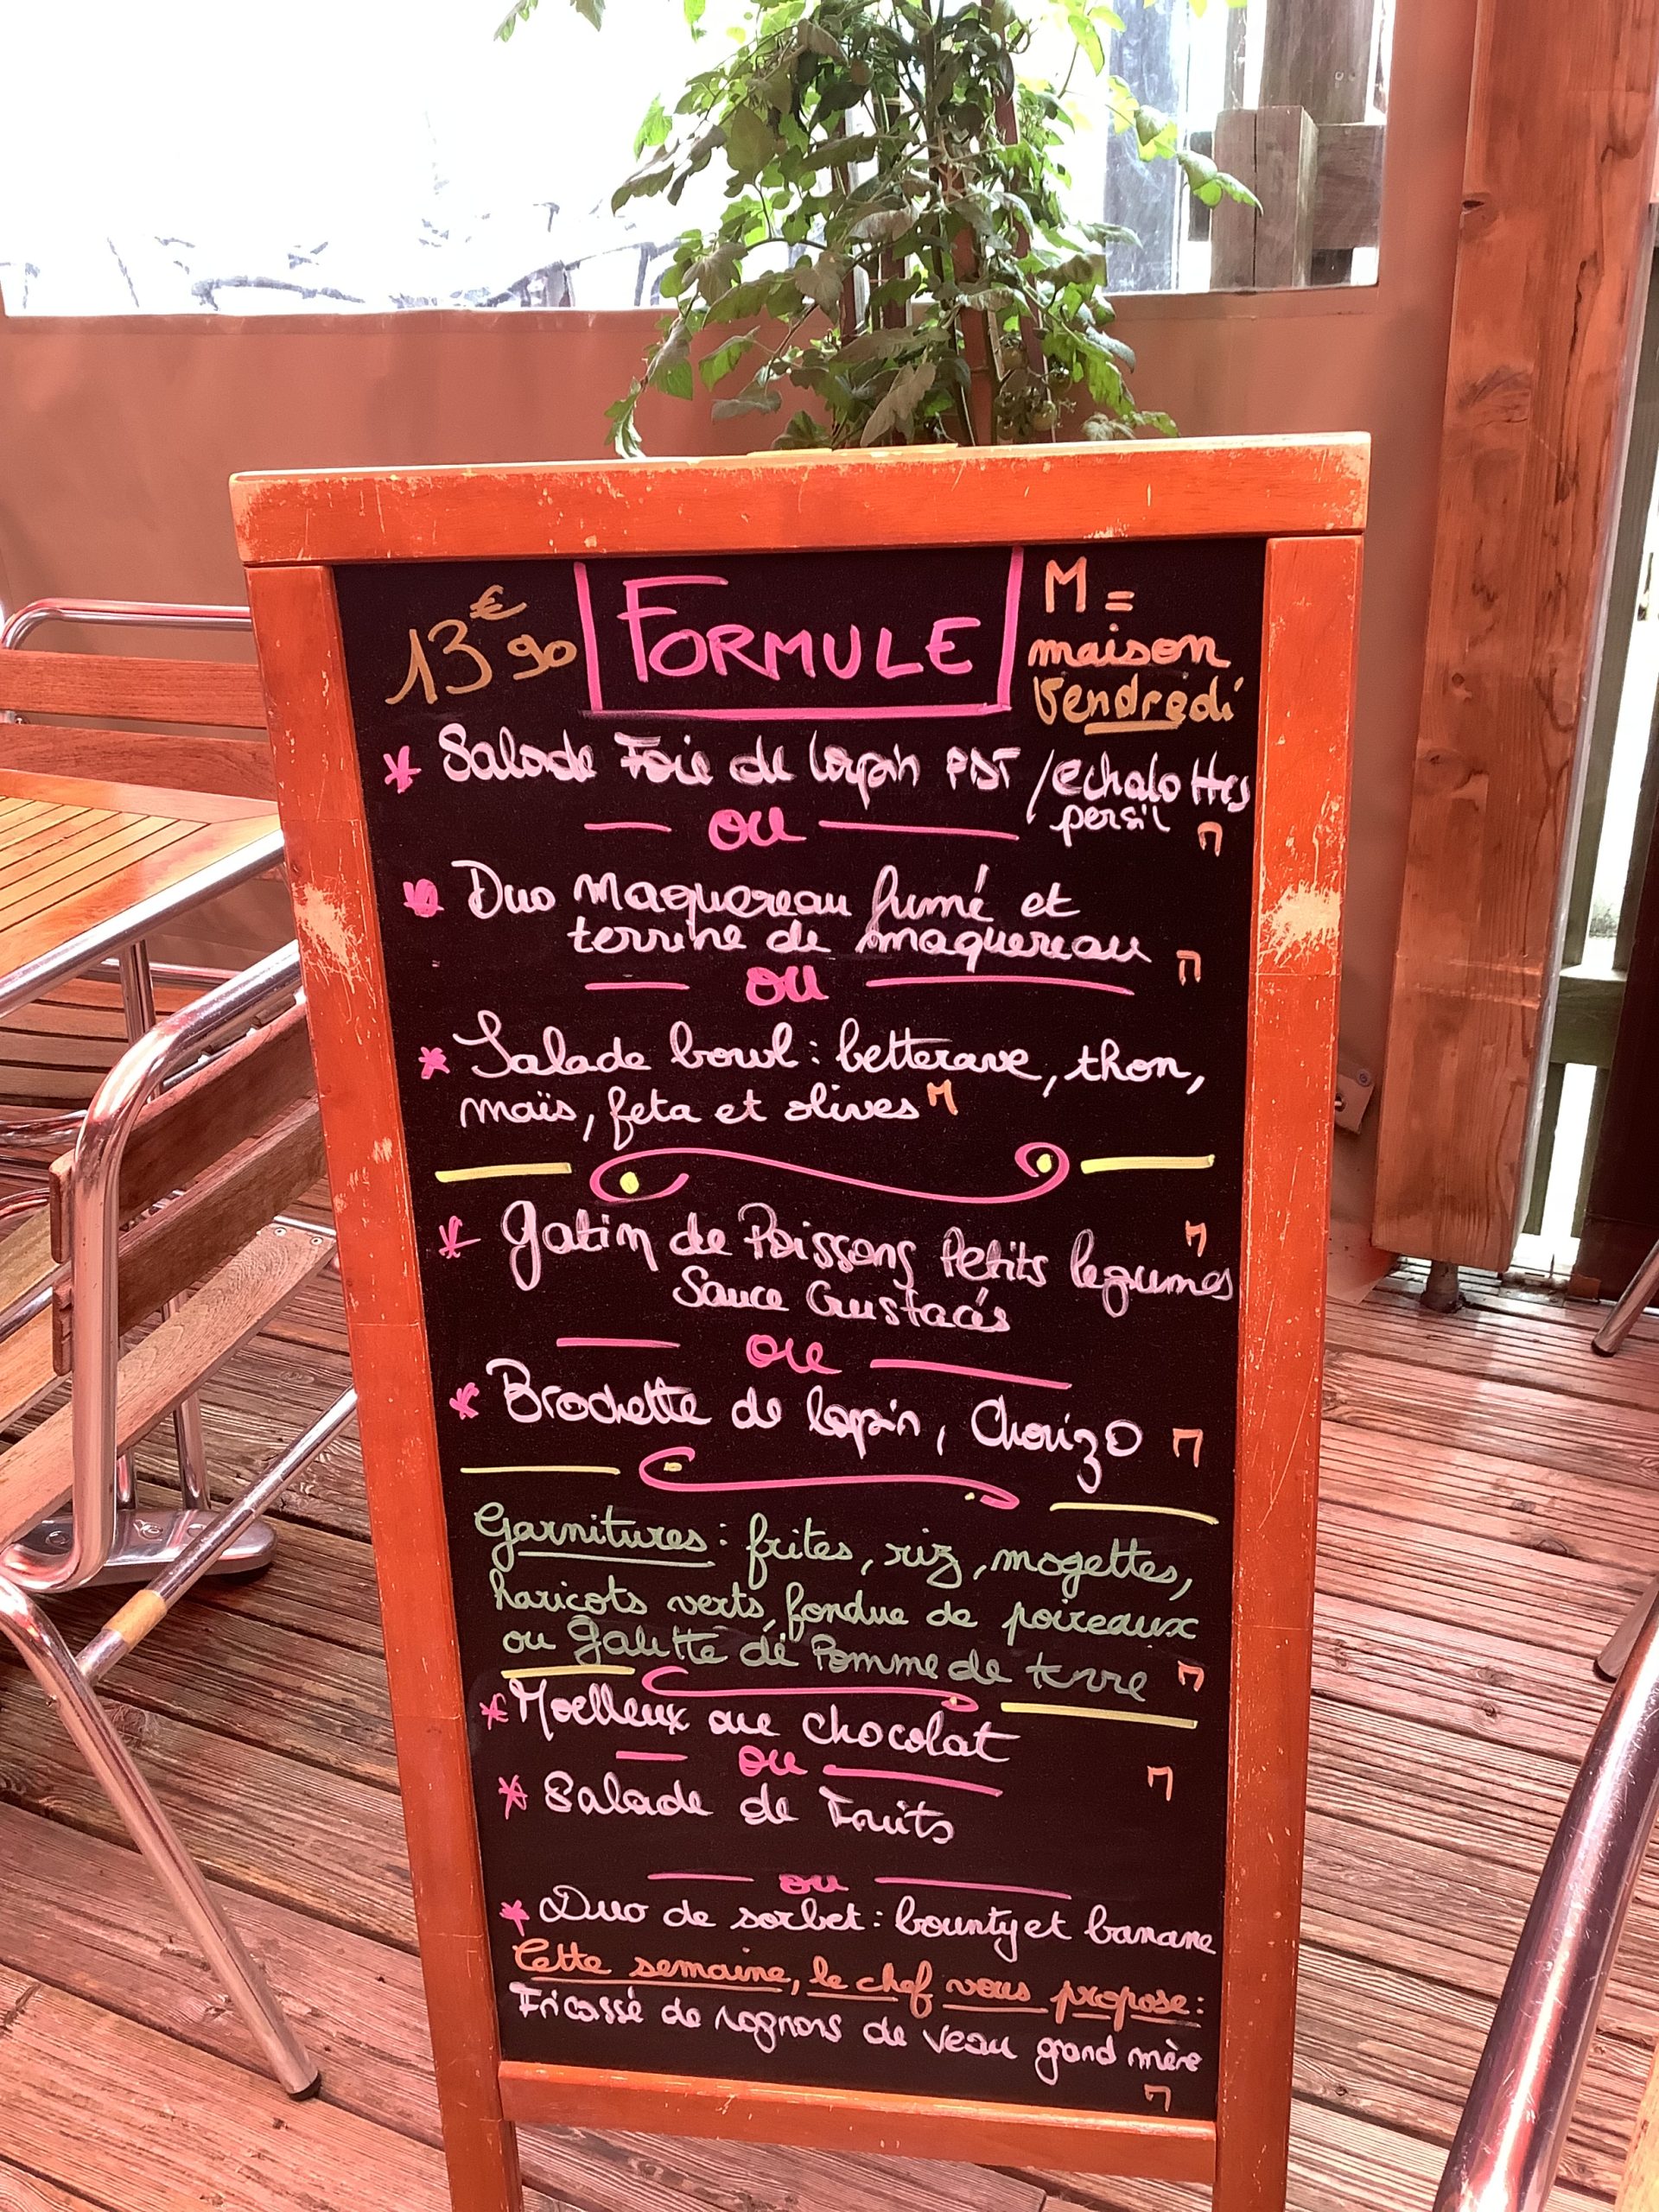 13€90 FORMULE M =
maison
Vendredi
* Salade Foie de lapin PDT / echalottes
persil M
ou
* Duo maquereau fumé et
terrine de maquereau M
ou
* Salade bowl : betterave, thon,
maïs, feta et olives M
* Gatin de Poissons Petits legumes M
Sauce Crustacés
ou
* Brochette de lapin, Chorizo M
Garnitures : frites, riz, mogettes,
haricots verts, fondue de poireaux
ou Galette de Pomme de terre M
* Moelleux au chocolat
ou M
* Salade de Fruits
ou
* Duo de sorbet : bounty et banane
Cette semaine, le chef vous propose :
Fricassé de rognons de veau grand mère
M